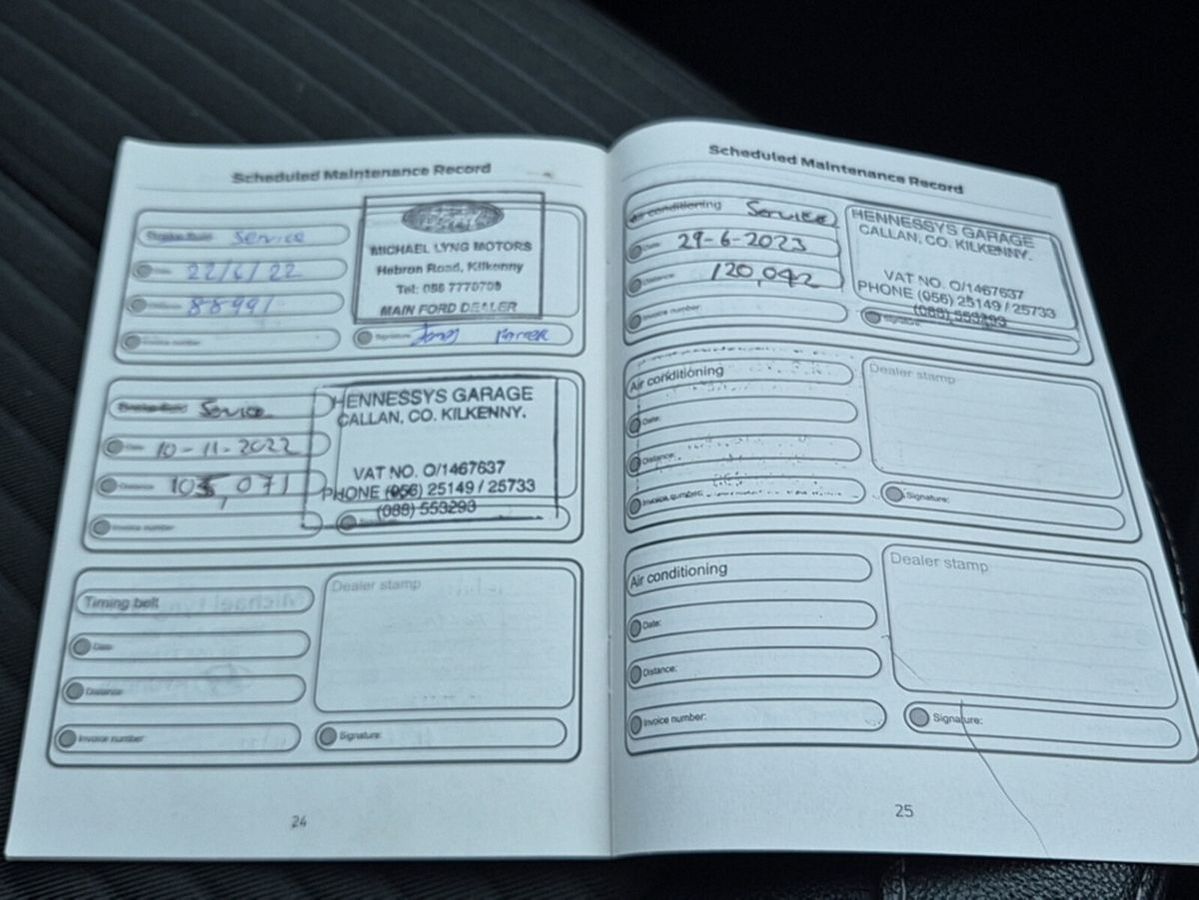 Scheduled Maintenance Record
Service
22/6/22
Date:
88991
Distance:
Invoice number:
MICHAEL LYNG MOTORS
Hebron Road, Kilkenny
Tel: 056 7770700
MAIN FORD DEALER
Signature:
Service
Date: 10-11-2022
Distance: 105,071
Invoice number:
HENNESSYS GARAGE
CALLAN, CO. KILKENNY.
VAT NO. O/1467637
PHONE (056) 25149 / 25733
(088) 553293
Timing belt
Date:
Distance:
Invoice number:
Dealer stamp
Signature:
24
Scheduled Maintenance Record
Air conditioning Service
Date: 29-6-2023
Distance: 120,042
Invoice number:
HENNESSYS GARAGE
CALLAN, CO. KILKENNY.
VAT NO. O/1467637
PHONE (056) 25149 / 25733
(088) 553293
Signature:
Air conditioning
Date:
Distance:
Invoice number:
Dealer stamp
Signature:
Air conditioning
Date:
Distance:
Invoice number:
Dealer stamp
Signature:
25